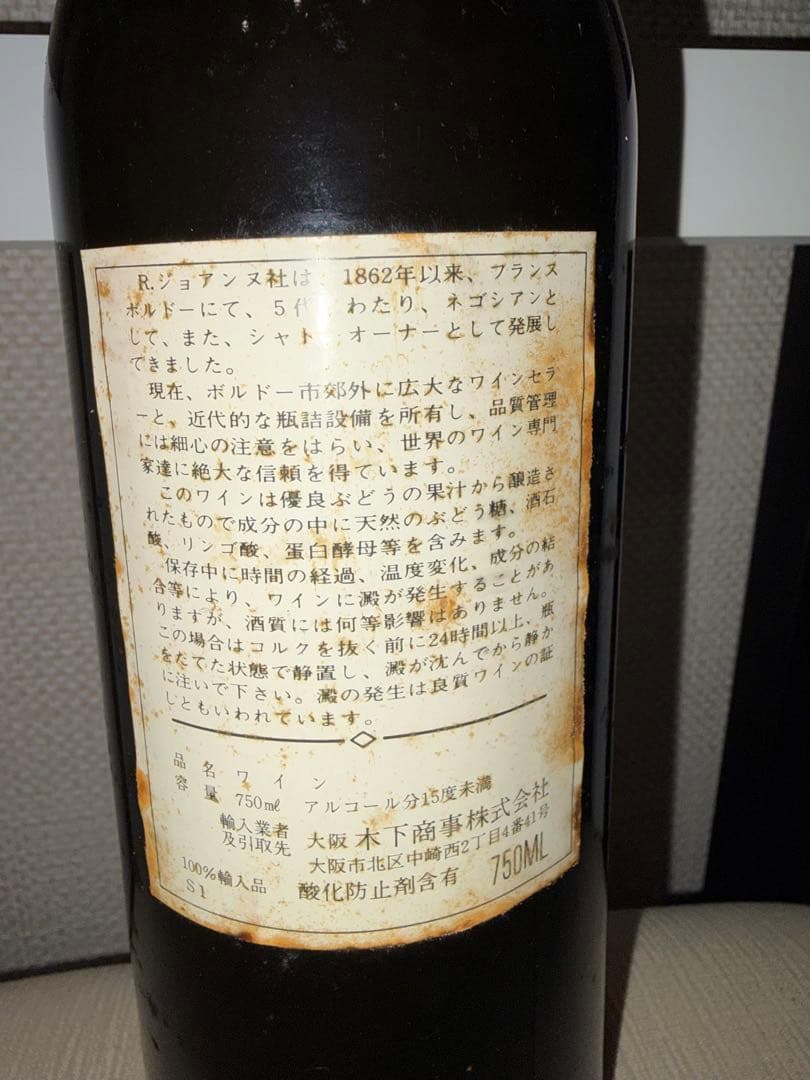 R.ジョアンヌ社は、1862年以来、フランス
ボルドーにて、5代 わたり、ネゴシアンと
して、また、シャトー オーナーとして発展し
てきました。
現在、ボルドー市郊外に広大なワインセラ
ーと、近代的な瓶詰設備を所有し、品質管理
には細心の注意をはらい、世界のワイン専門
家達に絶大な信頼を得ています。
このワインは優良ぶどうの果汁から醸造さ
れたもので成分の中に天然のぶどう糖、酒石
酸、リンゴ酸、蛋白酵母等を含みます。
保存中に時間の経過、温度変化、成分の結
合等により、ワインに澱が発生することがあ
りますが、酒質には何等影響はありません。
この場合はコルクを抜く前に24時間以上、瓶
をたてた状態で静置し、澱が沈んでから静か
に注いで下さい。澱の発生は良質ワインの証
しともいわれています。
品名 ワイン
容量 750mℓ アルコール分15度未満
輸入業者
及引取先
大阪 木下商事株式会社
大阪市北区中崎西2丁目4番41号
100%輸入品 酸化防止剤含有 750ML
S1